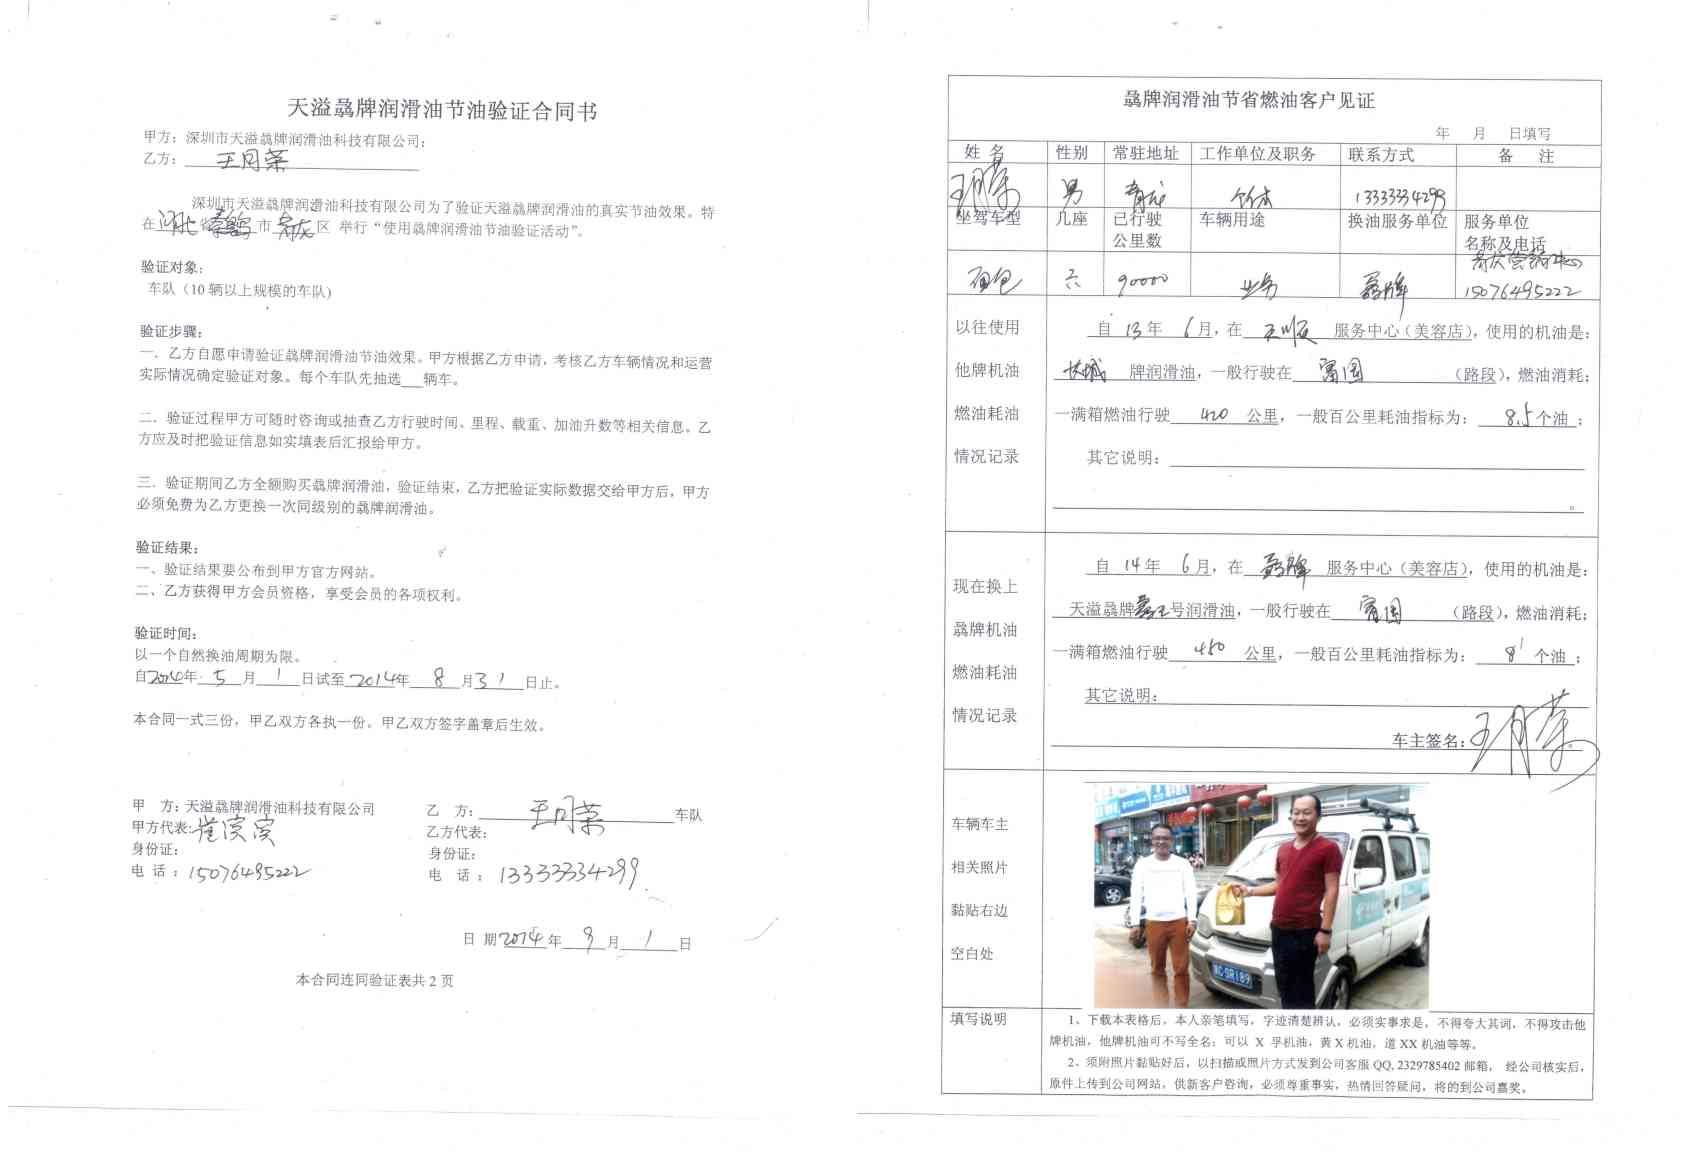 天溢骉牌润滑油节油验证合同书
甲方：深圳市天溢骉牌润滑油科技有限公司：
乙方：王月荣
深圳市天溢骉牌润滑油科技有限公司为了验证天溢骉牌润滑油的真实节油效果。特
在河北省 市青龙区 举行“使用骉牌润滑油节油验证活动”。
验证对象：
车队（10 辆以上规模的车队)
验证步骤：
一．乙方自愿申请验证骉牌润滑油节油效果。甲方根据乙方申请，考核乙方车辆情况和运营
实际情况确定验证对象。每个车队先抽选___辆车。
二．验证过程甲方可随时咨询或抽查乙方行驶时间、里程、载重、加油升数等相关信息。乙
方应及时把验证信息如实填表后汇报给甲方。
三．验证期间乙方全额购买骉牌润滑油，验证结束，乙方把验证实际数据交给甲方后，甲方
必须免费为乙方更换一次同级别的骉牌润滑油。
验证结果：
一、验证结果要公布到甲方官方网站。
二、乙方获得甲方会员资格，享受会员的各项权利。
验证时间：
以一个自然换油周期为限。
自2014年 5 月 1 日试至2014年 8 月31 日止。
本合同一式三份，甲乙双方各执一份。甲乙双方签字盖章后生效。
甲 方：天溢骉牌润滑油科技有限公司
甲方代表：崔滨滨
身份证：
电 话：15076495222
乙 方：王月荣 车队
乙方代表：
身份证：
电 话：13333334299
日 期2014年 9 月 1 日
本合同连同验证表共 2 页
骉牌润滑油节省燃油客户见证
年 月 日填写
姓 名 性别 常驻地址 工作单位及职务 联系方式 备 注
王月荣 男 青龙 个体 13333334299
坐驾车型 几座 已行驶公里数 车辆用途 换油服务单位 服务单位名称及电话
面包 六 90000 业务 骉牌 15076495222
以往使用他牌机油燃油耗油情况记录
自 13年 6月，在 服务中心（美容店），使用的机油是：
长城 牌润滑油，一般行驶在 （路段），燃油消耗：
一满箱燃油行驶 420 公里，一般百公里耗油指标为： 8.5个油；
其它说明：
。
现在换上骉牌机油燃油耗油情况记录
自 14年 6月，在 骉牌 服务中心（美容店），使用的机油是：
天溢骉牌 号润滑油，一般行驶在 （路段），燃油消耗；
一满箱燃油行驶 450 公里，一般百公里耗油指标为： 8 个油；
其它说明：
车主签名：王月荣
车辆车主相关照片黏贴右边空白处
填写说明
1、下载本表格后，本人亲笔填写，字迹清楚辨认，必须实事求是，不得夸大其词，不得攻击他
牌机油，他牌机油可不写全名；可以 X 孚机油，黄 X 机油，道 XX 机油等等。
2、须附照片黏贴好后，以扫描或照片方式发到公司客服 QQ, 2329785402 邮箱， 经公司核实后，
原件上传到公司网站，供新客户咨询，必须尊重事实，热情回答疑问，将的到公司嘉奖。